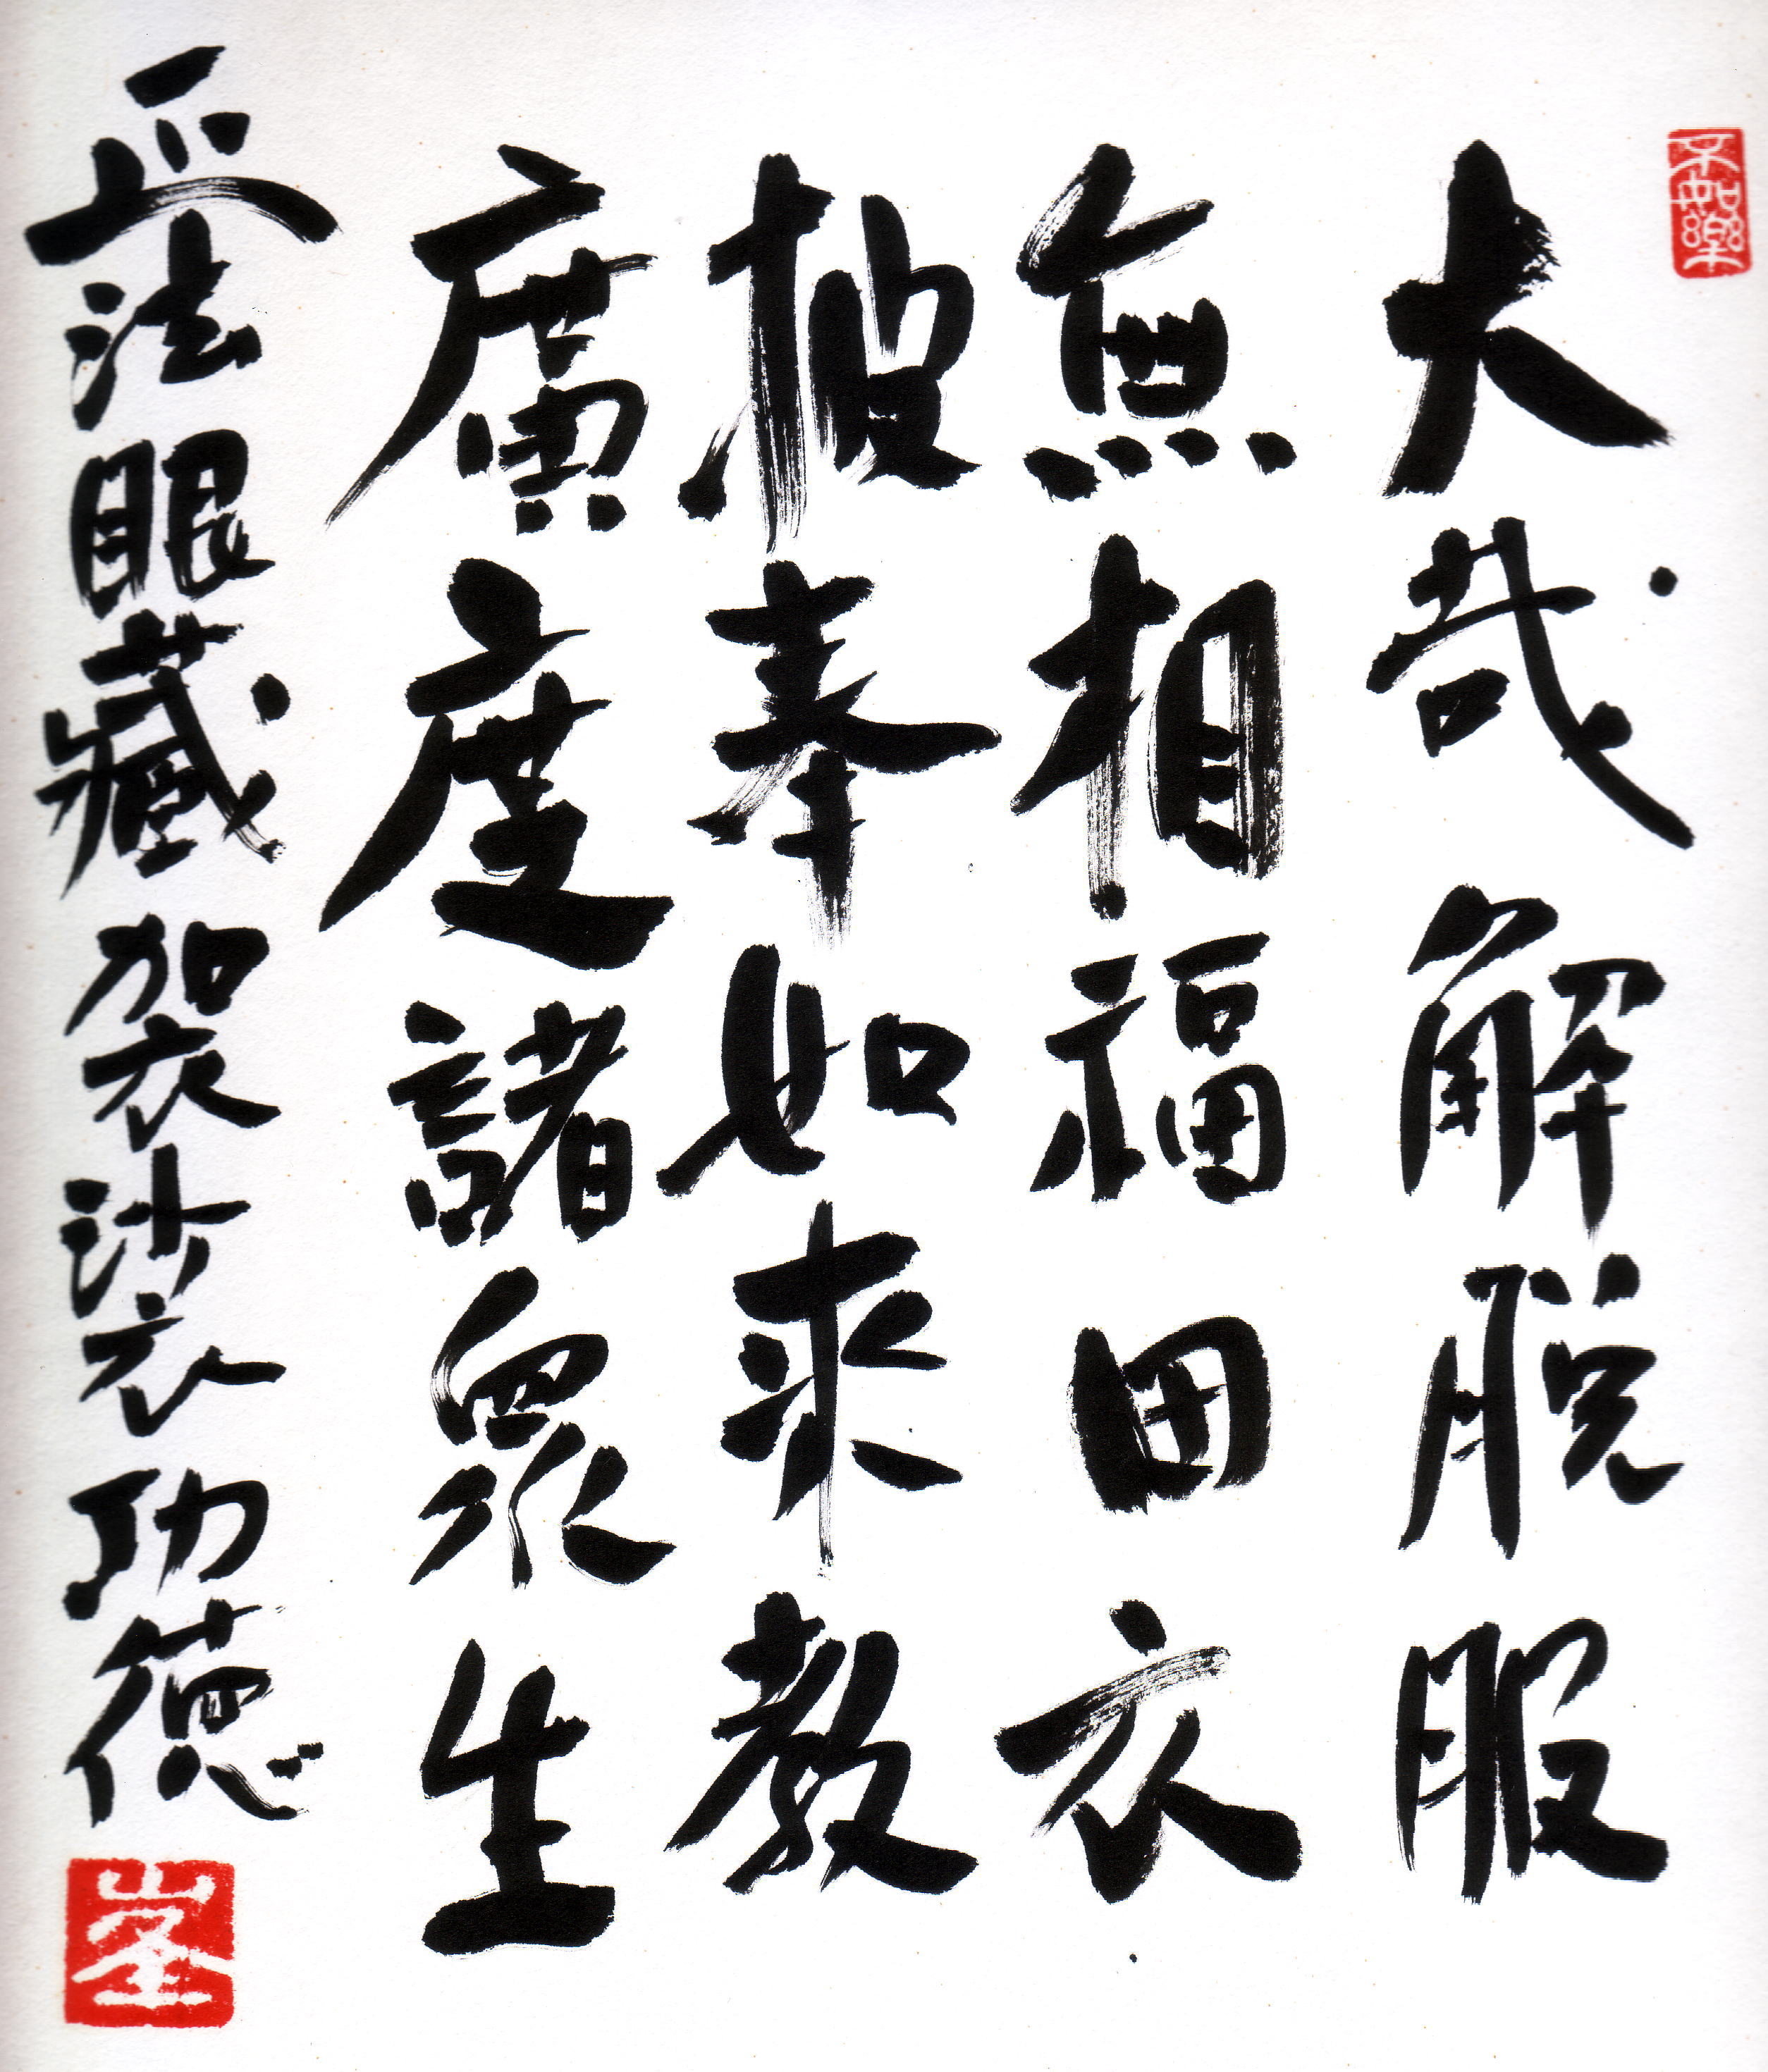 大哉解脱服
無相福田衣
披奉如来教
廣度諸衆生
正法眼藏袈裟功徳